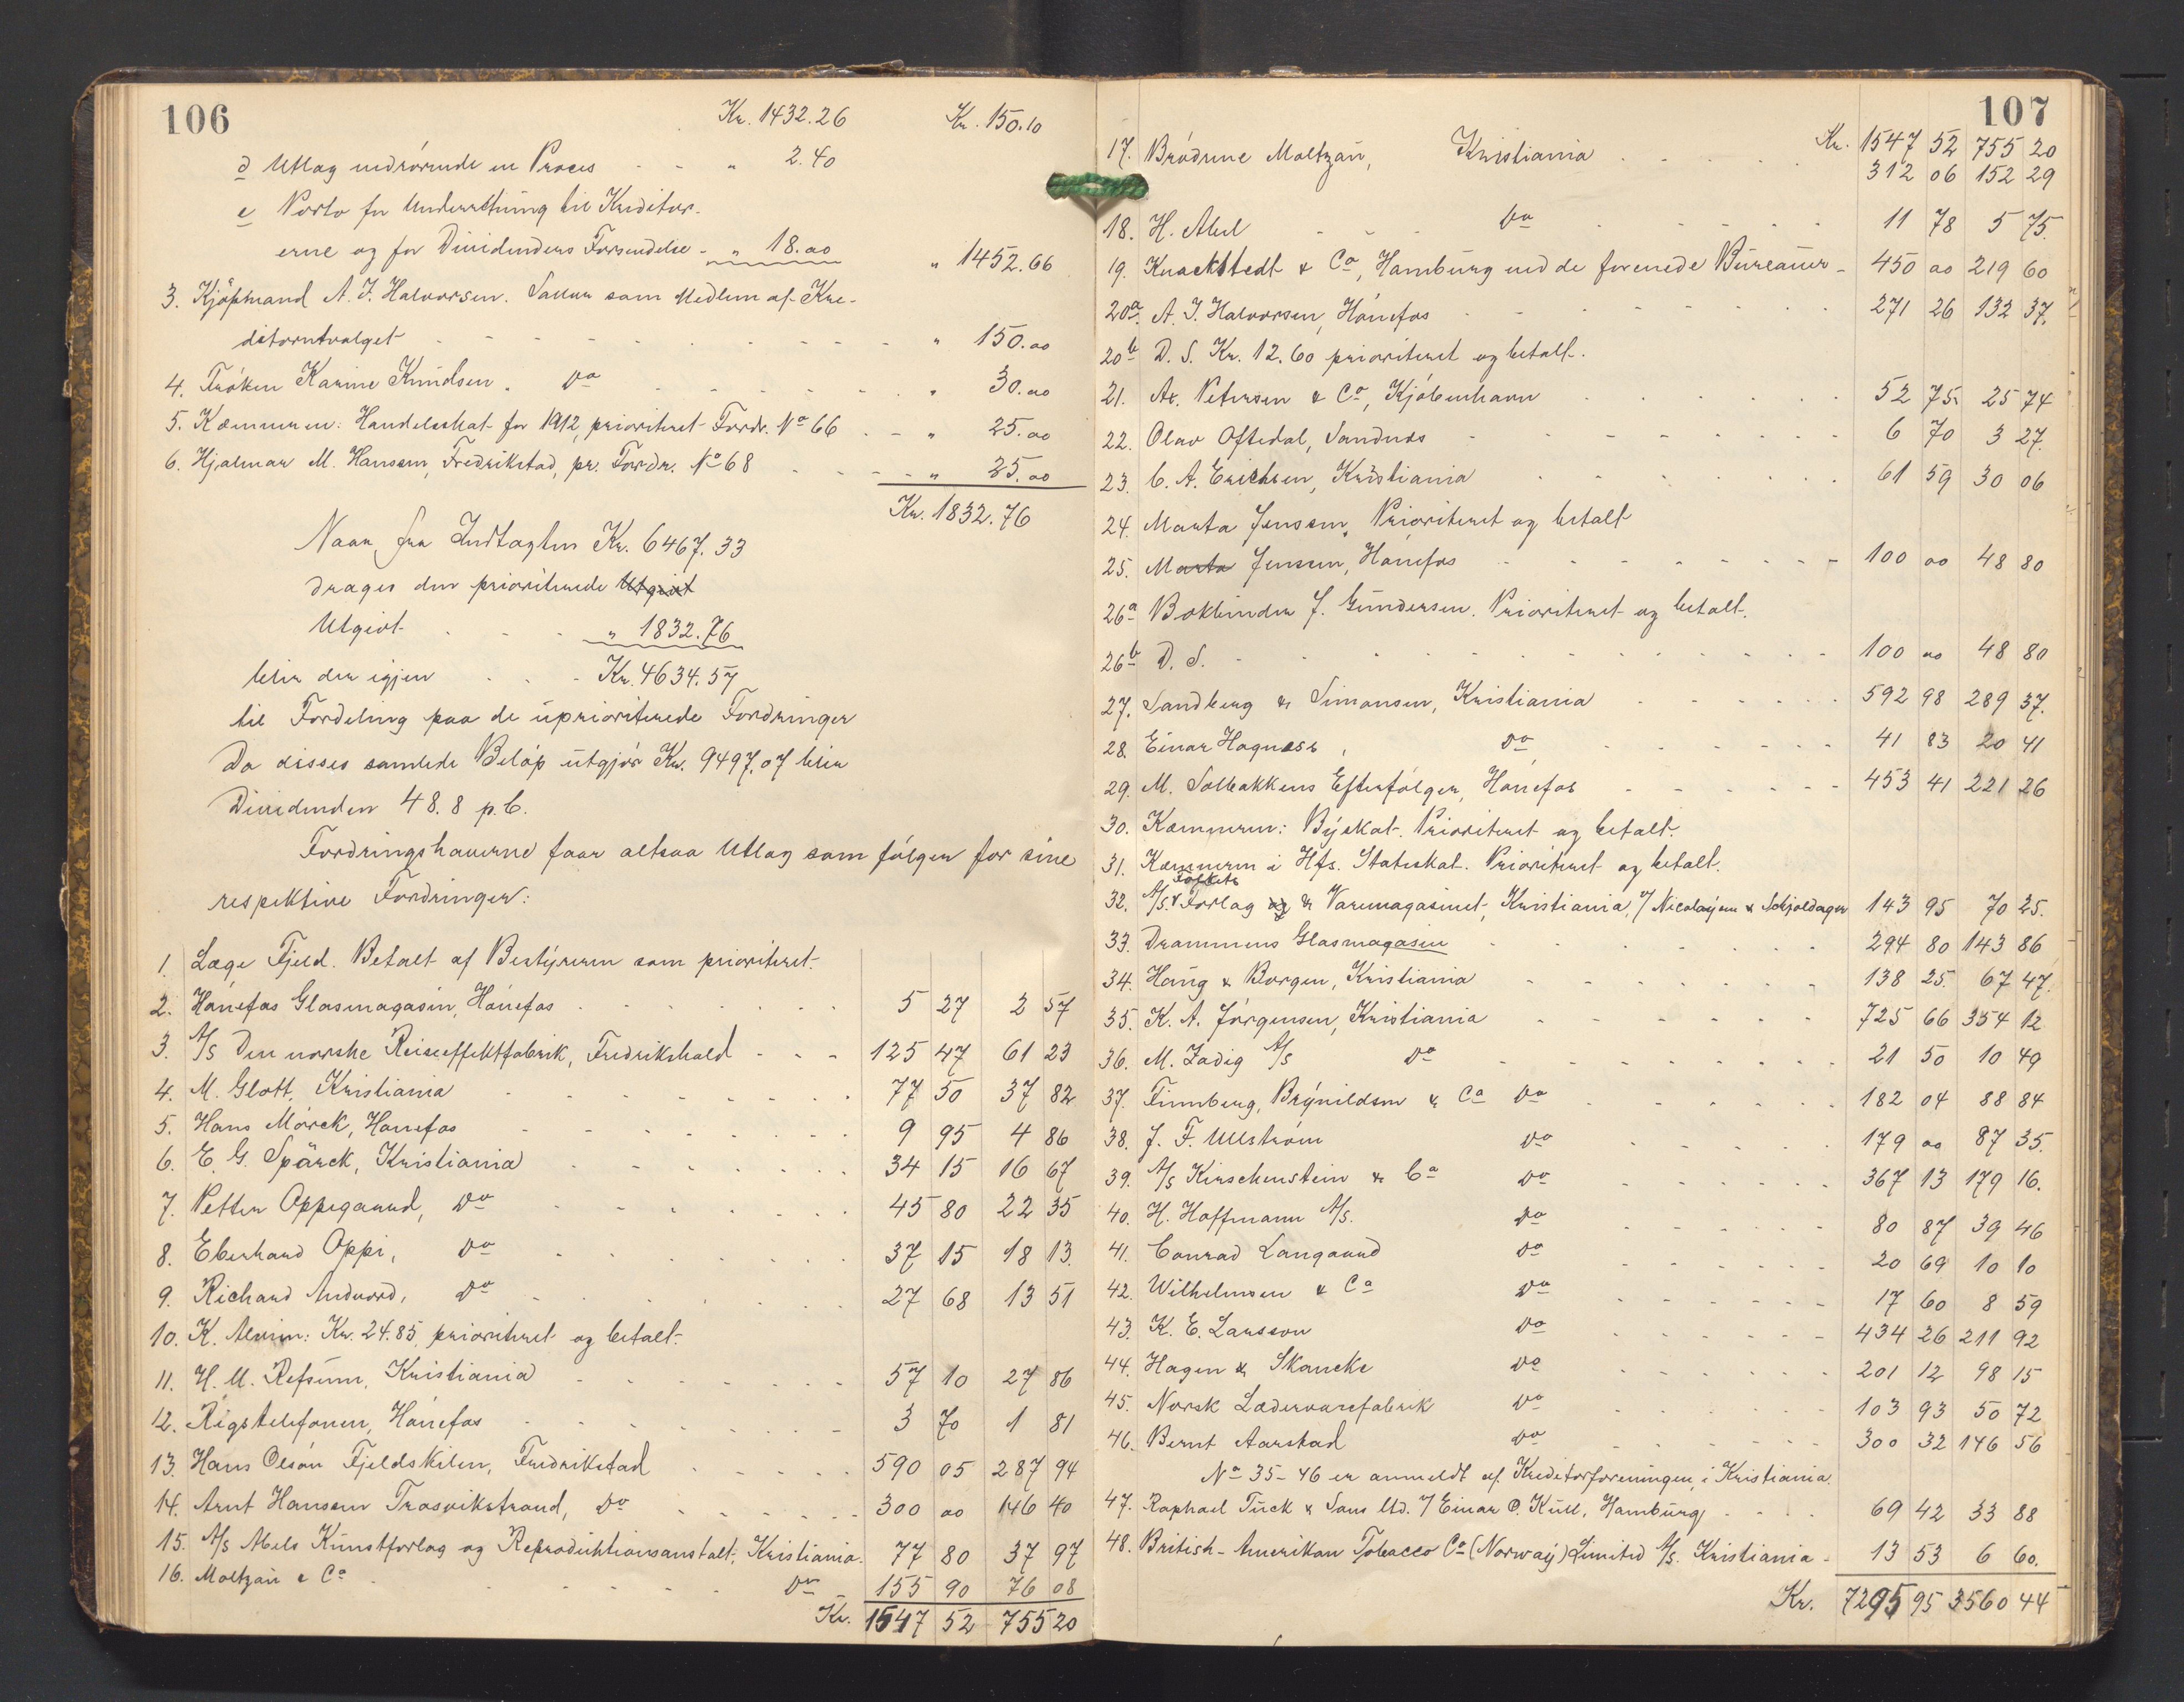 106
Kr. 1432.26 Kr. 150.10
d Utlæg vedrørende en Proces - - - " 2.40
e Porto for Underretning til Kreditor-
erne og for Dividendens Forsendelse - " 18.00 " 1452.66
3. Kjøpmand A. J. Halvorsen. Salær som Medlem af Kre-
ditorutvalget - - - " 150.00
4. Frøken Karine Knudsen. Do - - - " 30.00
5. Kæmneren: Handelsskat for 1912, prioriteret Fordr. No 66 - - " 25.00
6. Hjalmar M. Hansen, Fredrikstad, pr. Fordr. No 68 - - - " 25.00
Kr. 1832.76
Naar fra Indtægten Kr. 6467.33
drages den prioriterede Utgivt
Utgivt - - - " 1832.76
blir der igjen - - - Kr. 4634.57
til Fordeling paa de uprioriterede Fordringer
Da disses samlede Beløp utgjør Kr. 9497.07 blir
Dividenden 48.8 p.C.
Fordringshaverne faar altsaa Utlæg som følger for sine
respektive Fordringer:
1. Læge Fjeld. Betalt af Bestyreren som prioriteret.
2. Hønefos Glasmagasin, Hønefos - - - 5 27 2 57
3. A/S Den norske Reiseeffektfabrik, Fredrikshald - - - 125 47 61 23
4. M. Glott, Kristiania - - - 77 50 37 82
5. Hans Mörck, Hønefos - - - 9 95 4 86
6. E. G. Spärck, Kristiania - - - 34 15 16 67
7. Petter Oppegaard, Do - - - 45 80 22 35
8. Eberhard Oppi, Do - - - 37 15 18 13
9. Richard Andvord, Do - - - 27 68 13 51
10. K. Alvim: Kr. 24.85 prioriteret og betalt.
11. H. M. Refsum, Kristiania - - - 57 10 27 86
12. Rigstelefonen, Hønefos - - - 3 70 1 81
13. Hans Olsøn Fjeldskilen, Fredrikstad - - - 590 05 287 94
14. Arnt Hansen Trosvikstrand, Do - - - 300 00 146 40
15. A/S Abels Kunstforlag og Reproduktionsanstalt, Kristiania - 77 80 37 97
16. Moltzau & Co - - - Do 155 90 76 08
Kr. 1547 52 755 20
107
Kr. 1547 52 755 20
17. Brødrene Moltzau, Kristiania - - - 312 06 152 29
18. H. Abel - - - Do - - - 11 78 5 75
19. Knackstedt & Co, Hamburg ved de forenede Bureauer - 450 00 219 60
20a. A. J. Halvorsen, Hønefos - - - 271 26 132 37
20b D. S. Kr. 12.60 prioriteret og betalt.
21. Ax. Petersen & Co, Kjøbenhavn - - - 52 75 25 74
22. Olav Oftedal, Sandnes - - - 6 70 3 27
23. C. A. Erichsen, Kristiania - - - 61 59 30 06
24. Marta Jensen, Prioriteret og betalt
25. Marta Jensen, Hønefos - - - 100 00 48 80
26a Bokbinder J. Gundersen. Prioriteret og betalt.
26b D. S. - - - 100 00 48 80
27. Sandberg & Simonsen, Kristiania - - - 592 98 289 37
28. Einar Hagness, Do - - - 41 83 20 41
29. M. Solbakkens Efterfølger, Hønefos - - - 453 41 221 26
30. Kæmneren: Byskat. Prioriteret og betalt.
31. Kæmneren i Hfs. Statsskat. Prioriteret og betalt.
Folkets
32. A/S. Forlag og & Varemagasinet, Kristiania, v/ Nicolaysen & Schjoldager 143 95 70 25
33. Drammens Glasmagasin - - - 294 80 143 86
34. Haug & Borgen, Kristiania - - - 138 25 67 47
35. K. A. Jørgensen, Kristiania - - - 725 66 354 12
36. M. Zadig A/S Do - - - 21 50 10 49
37. Finnberg, Brynildsen & Co Do - - - 182 04 88 84
38. J. F. Ullström Do - - - 179 00 87 35
39. A/S Kirschenstein & Co Do - - - 367 13 179 16
40. H. Hoffmann A/S. Do - - - 80 87 39 46
41. Conrad Langaard Do - - - 20 69 10 10
42. Wilhelmsen & Co Do - - - 17 60 8 59
43. K. E. Larsson Do - - - 434 26 211 92
44. Hagen & Skancke Do - - - 201 12 98 15
45. Norsk Lædervarefabrik Do - - - 103 93 50 72
46. Bernt Aarstad Do - - - 300 32 146 56
No 35-46 er anmeldt af Kreditorforeningen, i Kristiania.
47. Raphael Tuck & Sons ltd. v/ Einar O. Kull, Hamburg - - - 69 42 33 88
48. British-Amerikan Tobacco Co (Norway) Limited A/S. Kristiania - 13 53 6 60
Kr. 7295 95 3560 44